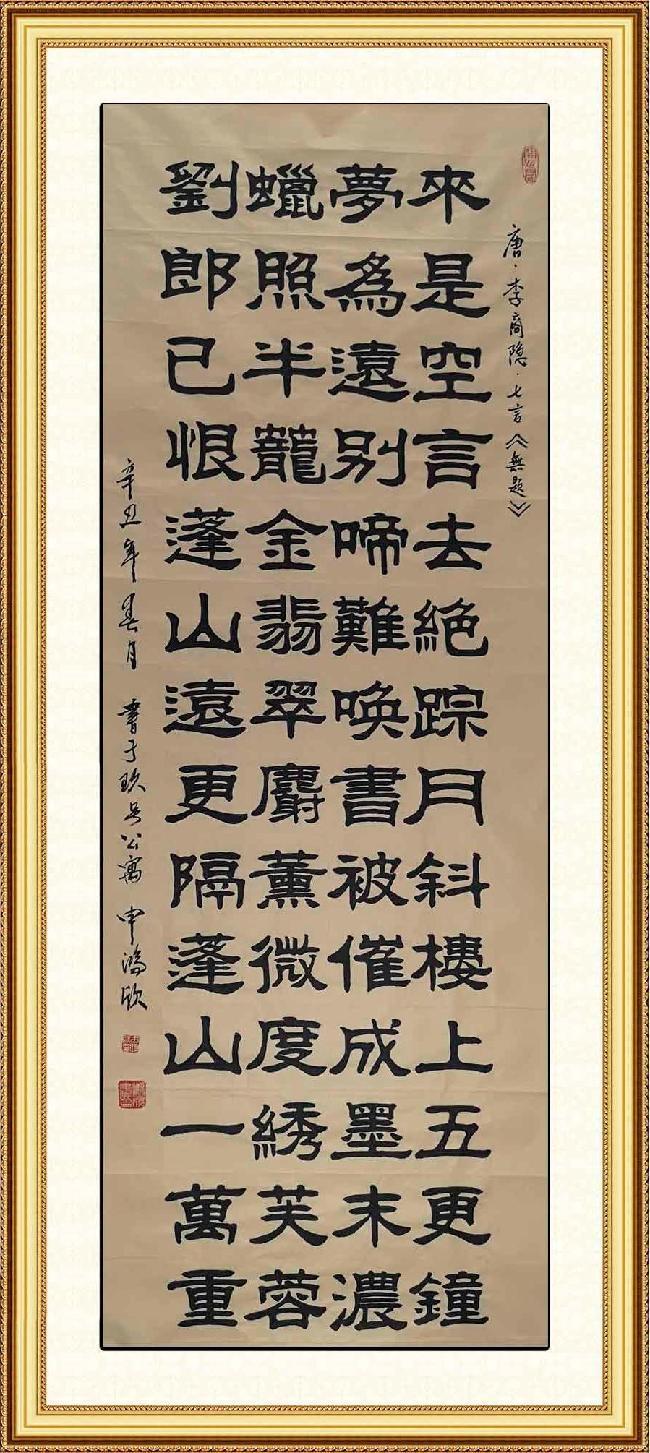 唐·李商隐·七言《無題》
來是空言去絕踪月斜樓上五更鐘
夢為遠別啼難唤書被催成墨末濃
蠟照半籠金翡翠麝薰微度綉芙蓉
劉郎已恨蓬山遠更隔蓬山一萬重
辛丑年春月 書于玖号公寓 申鴻欣